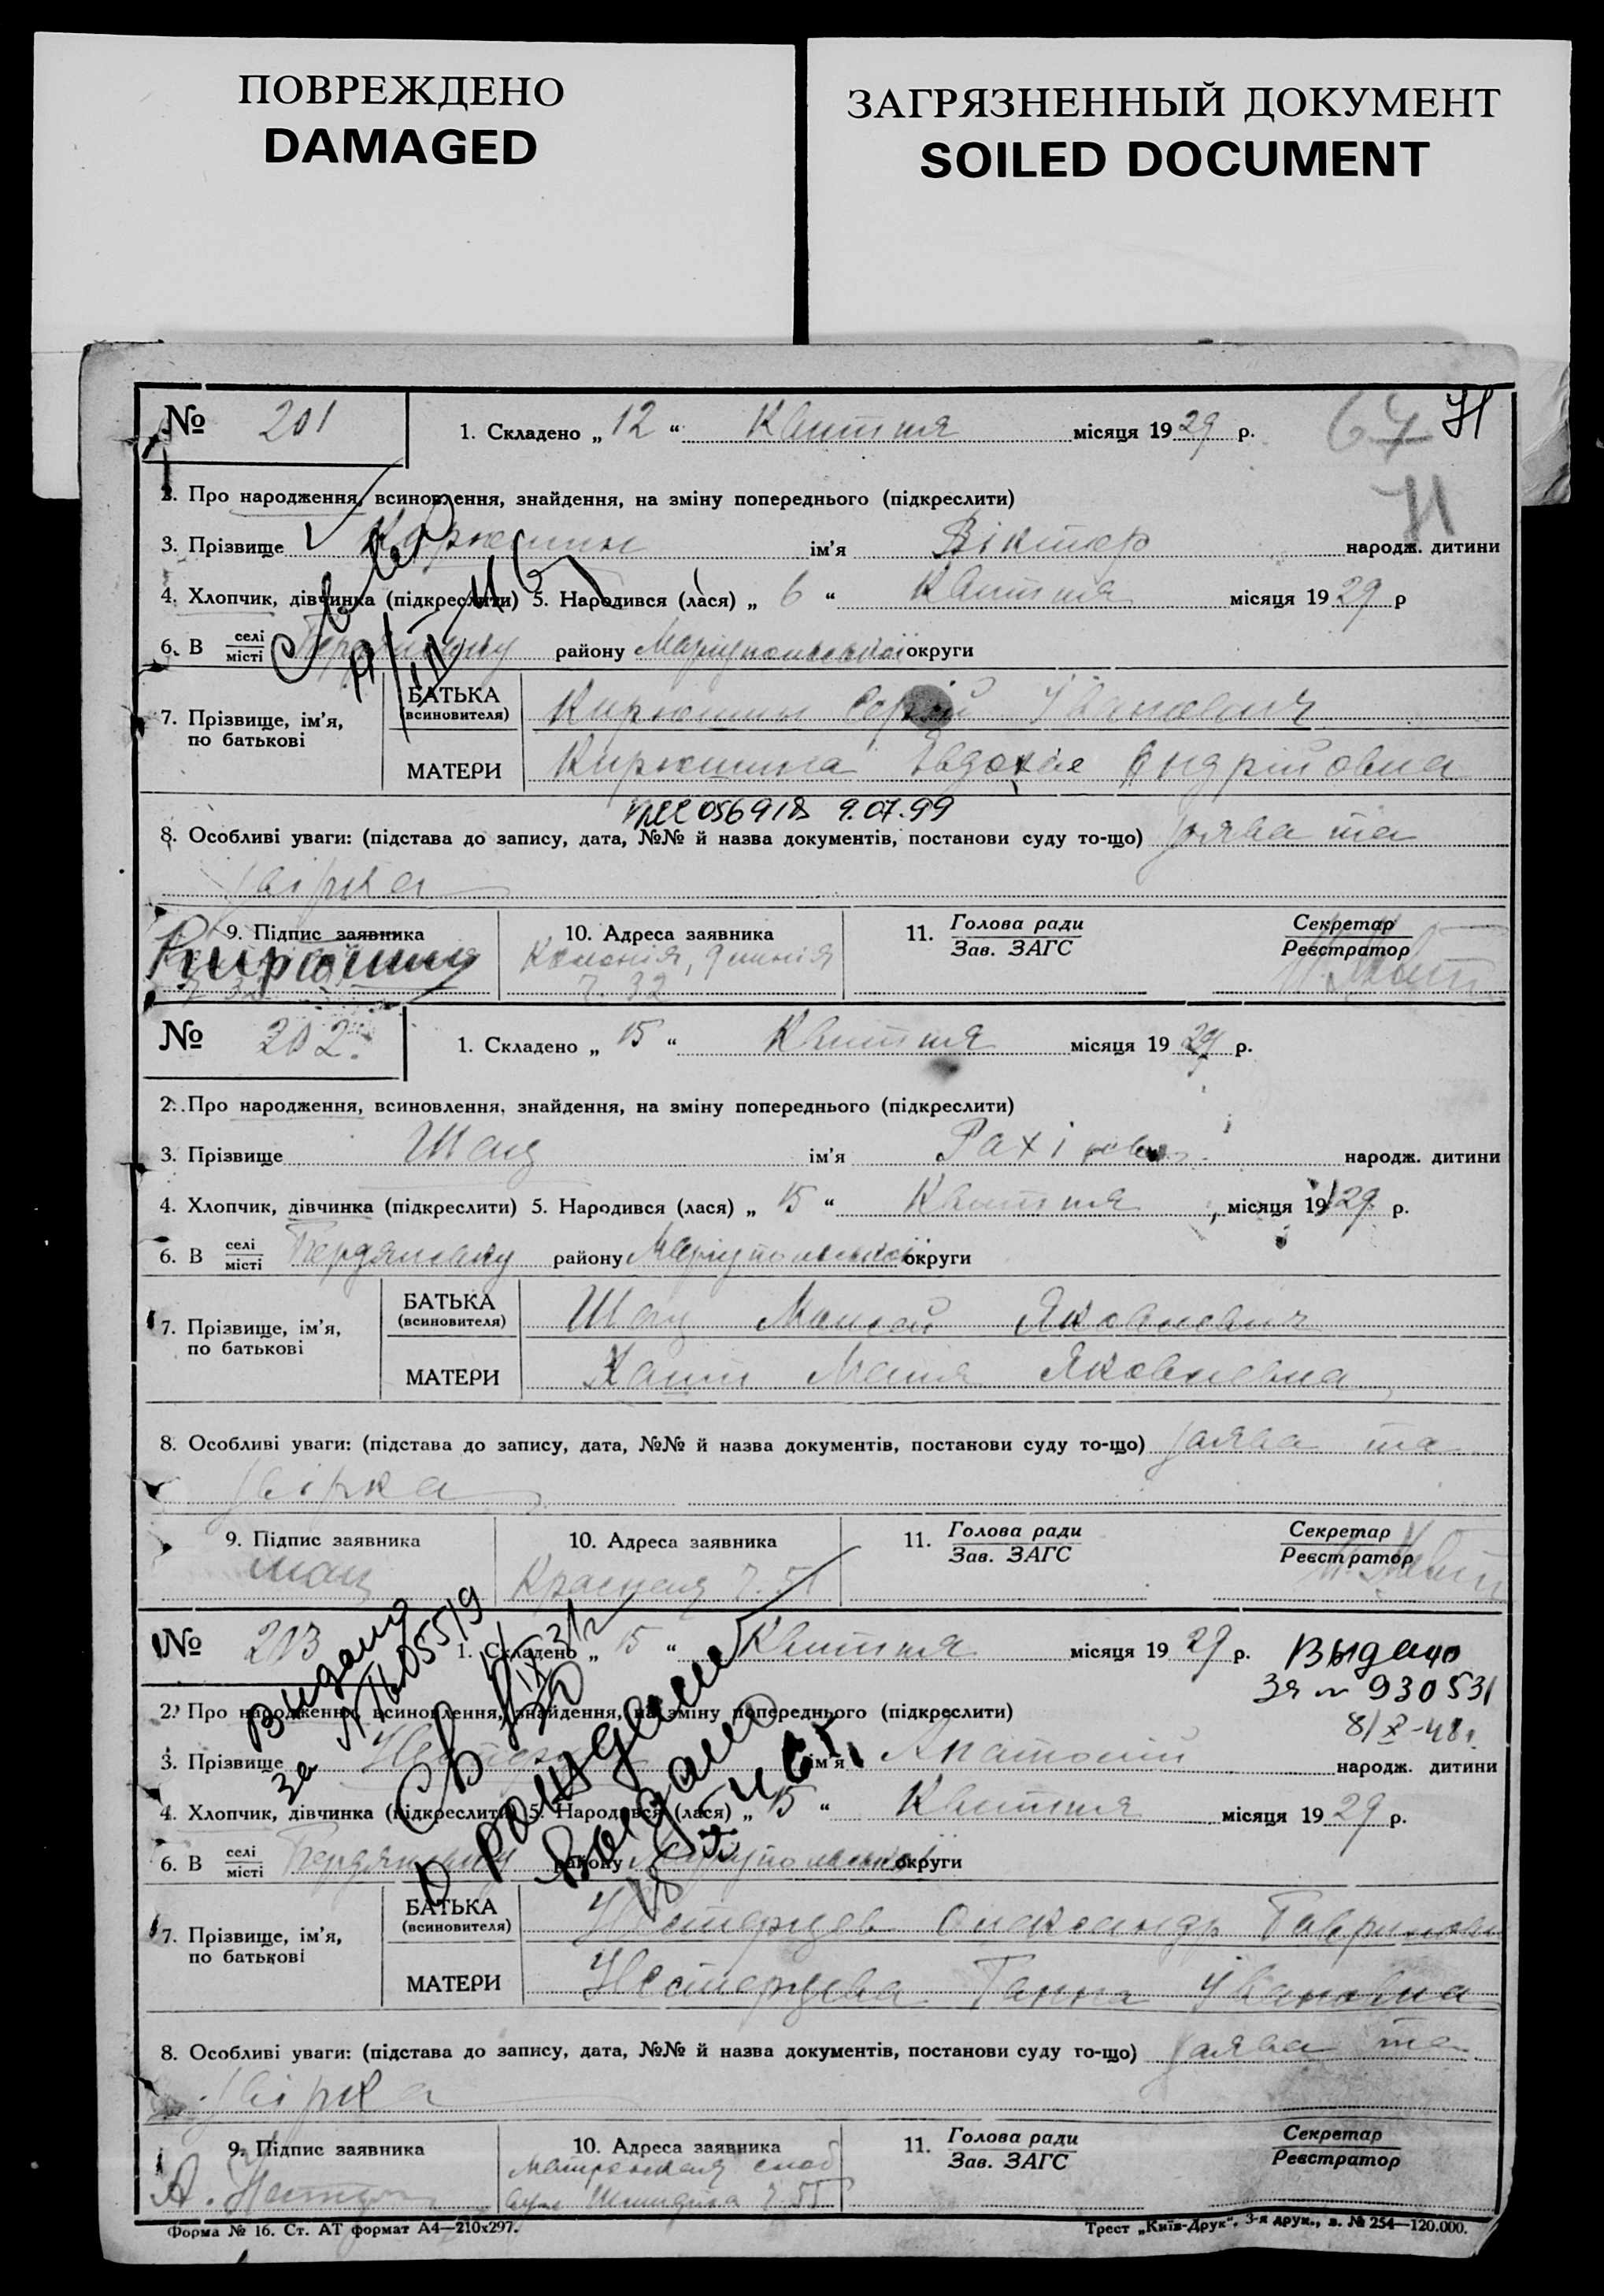 ПОВРЕЖДЕНО
DAMAGED
ЗАГРЯЗНЕННЫЙ ДОКУМЕНТ
SOILED DOCUMENT
№ 201
1. Складено „ 12 “ Квитня місяця 1929 р.
67 Н
Н
2. Про народження, всиновлення, знайдення, на зміну попереднього (підкреслити)
3. Прізвище Кирюшин ім’я Віктор народж. дитини
4. Хлопчик, дівчинка (підкреслити) 5. Народився (лася) „ 6 “ Квитня місяця 1929 р
6. В селі/місті Бердянську району Маріупольської округи
7. Прізвище, ім’я, по батькові
БАТЬКА (всиновителя) Кирюшин Сергій Іванович
МАТЕРИ Кирюшина Євдокія Андрійовна
056918 9.07.99
8. Особливі уваги: (підстава до запису, дата, №№ й назва документів, постанови суду то-що) заява та
звірка
9. Підпис заявника
10. Адреса заявника
11. Голова ради/Зав. ЗАГС
Секретар/Реєстратор
Кирюшин
Колонія, 9 линія
ч. 32
№ 202.
1. Складено „ 15 “ Квитня місяця 1929 р.
2. Про народження, всиновлення, знайдення, на зміну попереднього (підкреслити)
3. Прізвище Шац ім’я народж. дитини
4. Хлопчик, дівчинка (підкреслити) 5. Народився (лася) „ 15 “ Квитня місяця 1929 р.
6. В селі/місті Бердянську району Маріупольської округи
7. Прізвище, ім’я, по батькові
БАТЬКА (всиновителя) Шац Мойсей Яковлевич
МАТЕРИ Яковлевна
8. Особливі уваги: (підстава до запису, дата, №№ й назва документів, постанови суду то-що) заява та
звірка
9. Підпис заявника
10. Адреса заявника
11. Голова ради/Зав. ЗАГС
Секретар/Реєстратор
Шац
Красная ч. 51
№ 203
1. Складено „ 15 “ Квитня місяця 1929 р.
Выдано
за № 930531
8/X-48г.
2. Про народження, всиновлення, знайдення, на зміну попереднього (підкреслити)
3. Прізвище ім’я Анатолій народж. дитини
4. Хлопчик, дівчинка (підкреслити) 5. Народився (лася) „ 15 “ Квитня місяця 1929 р.
6. В селі/місті Бердянську району Маріупольської округи
7. Прізвище, ім’я, по батькові
БАТЬКА (всиновителя) Нестерцев Олександр Гаврилович
МАТЕРИ Нестерцева Ганна Івановна
8. Особливі уваги: (підстава до запису, дата, №№ й назва документів, постанови суду то-що) заява та
звірка
9. Підпис заявника
10. Адреса заявника
11. Голова ради/Зав. ЗАГС
Секретар/Реєстратор
Матросская слоб
Шмидта ч. 55
Форма № 16. Ст. АТ формат А4—210х297.
Трест „Київ-Друк“, 3-я друк., з. № 254—120.000.